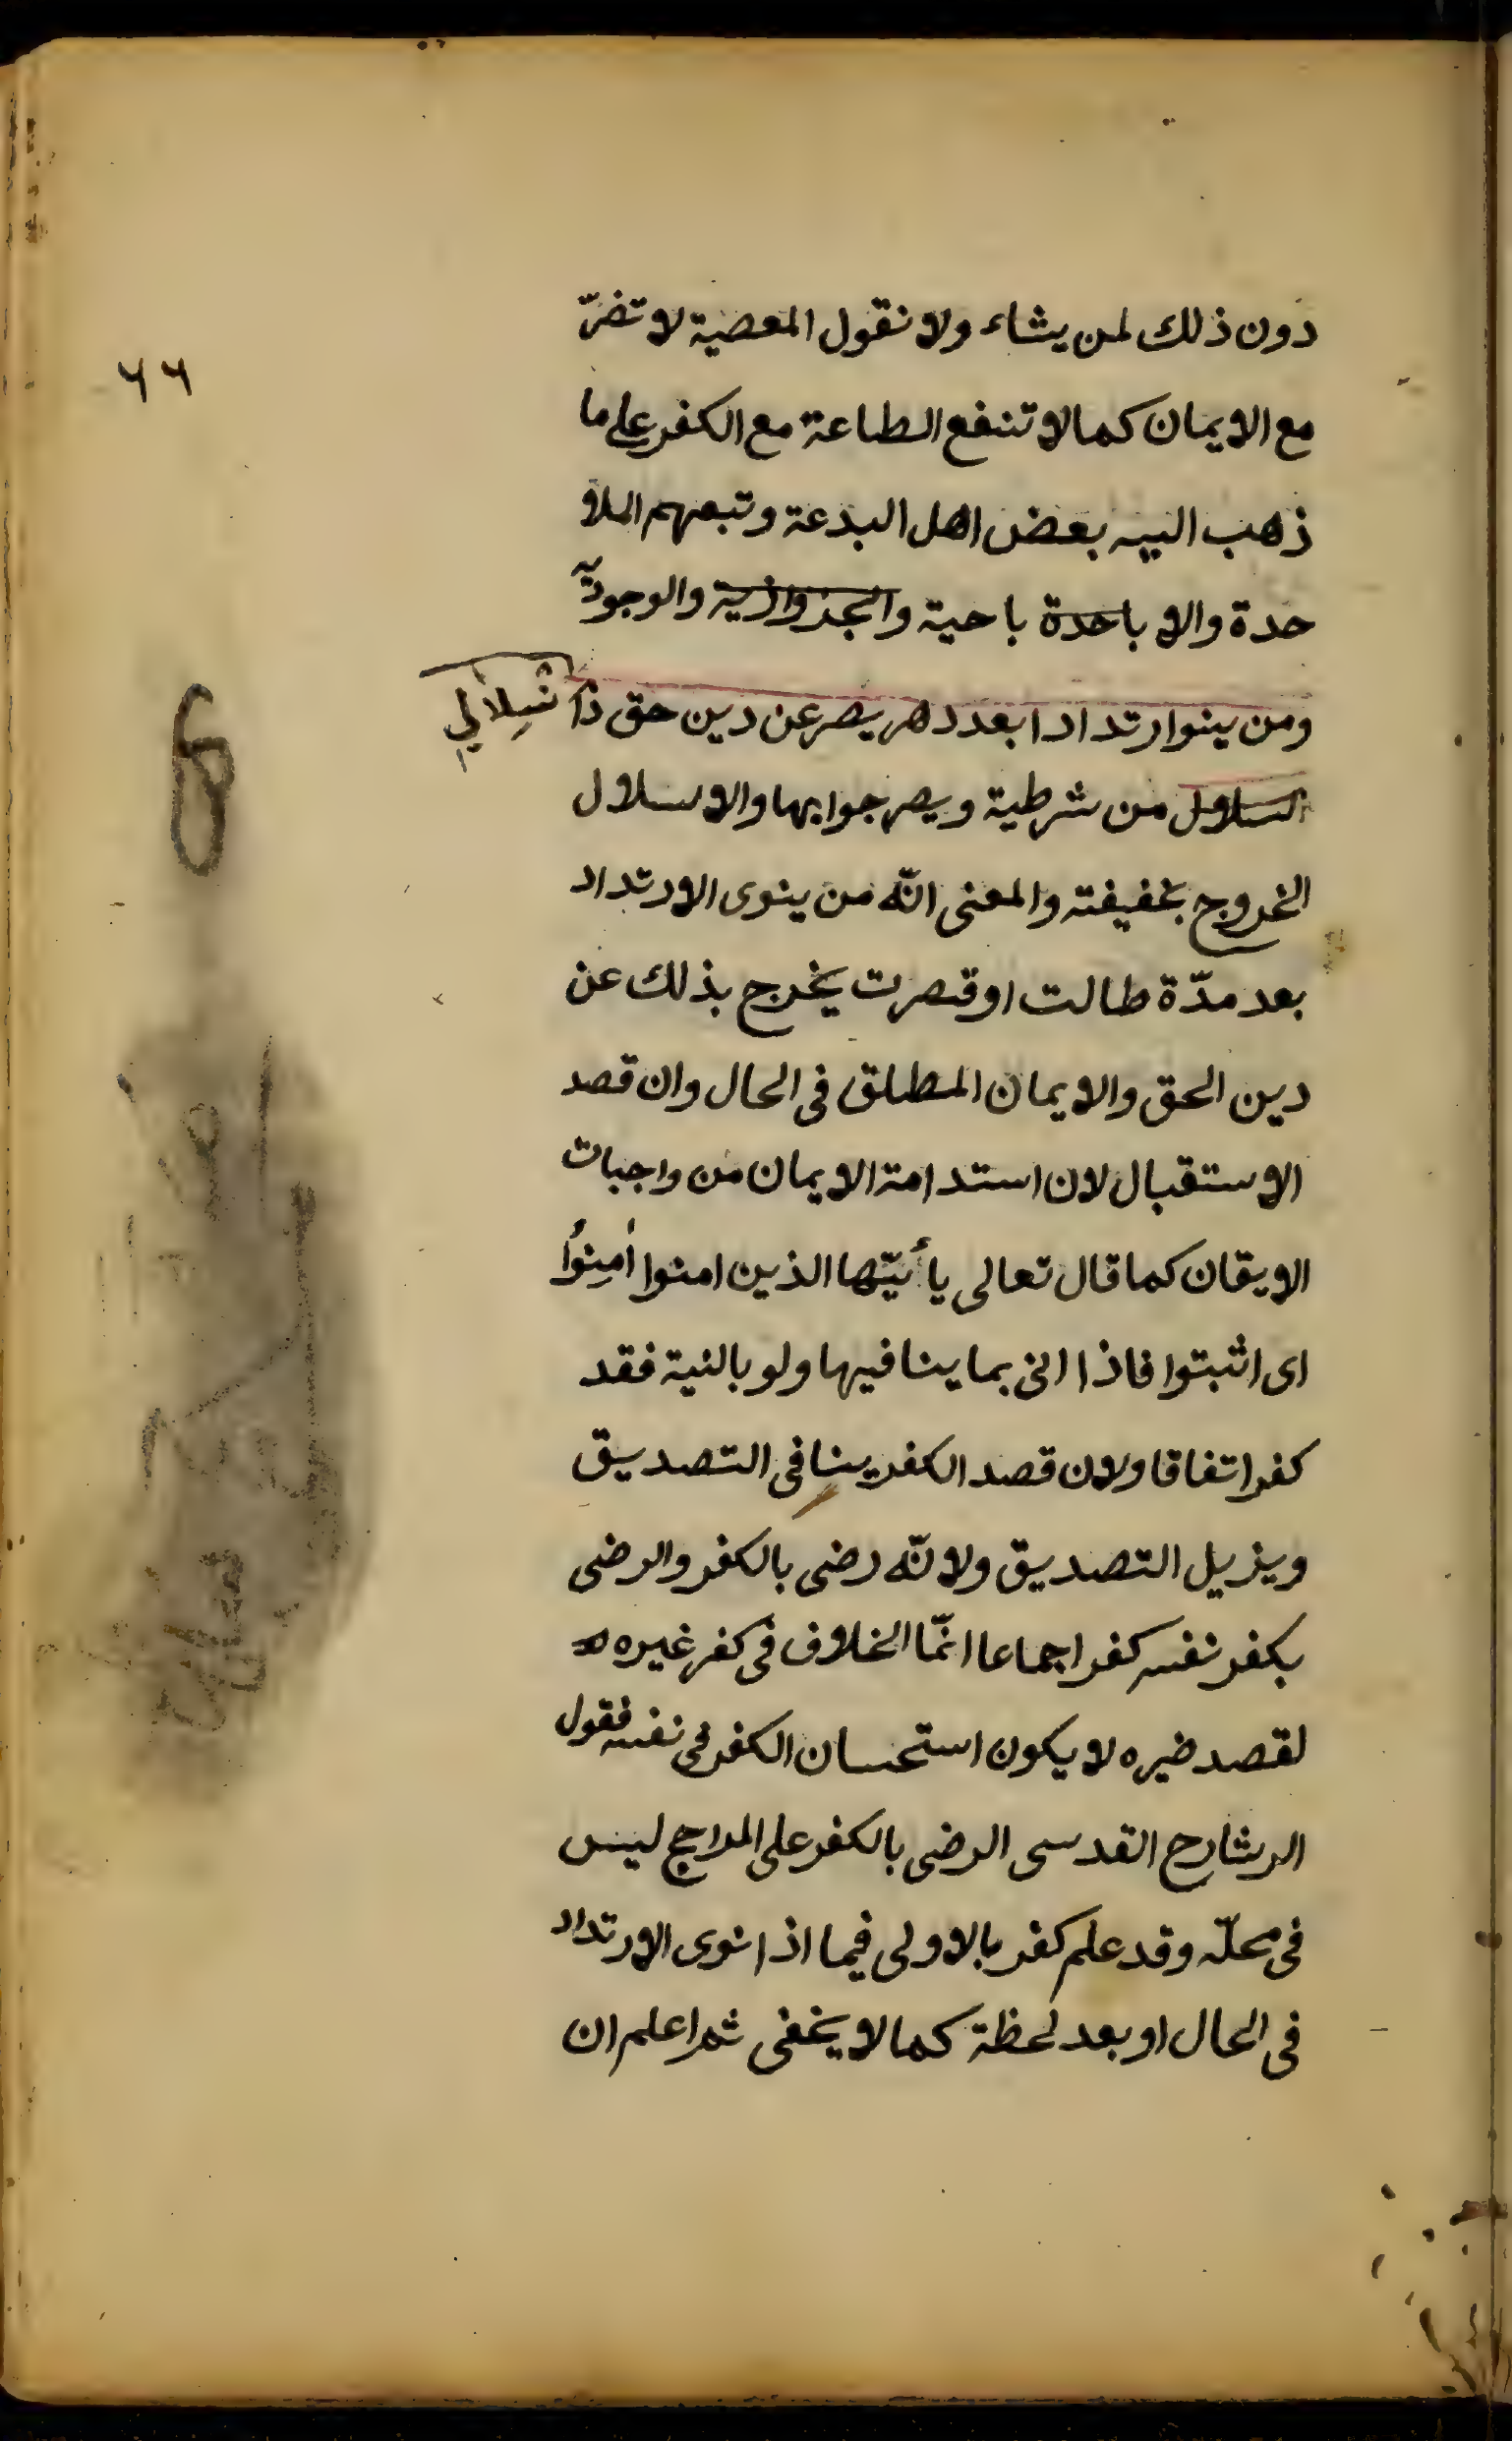 ٦٦
دون ذلك لمن يشاء ولا نقول المعصية لا تضرّ
مع الايمان كما لا تنفع الطاعة مع الكفر على ما
ذهب اليه بعض اهل البدعة وتبعهم الملا
حدة والا باحدة باحية والوجوديّة
ومن ينوا ارتدادا بعد دهر يصر عن دين حق ذا انسلال
السلال من شرطية ويصر جوابها والاسلال
الخروج بخفيفته والمعنى انّه من ينوى الارتداد
بعد مدّة طالت او قصرت يخرج بذلك عن
دين الحق والايمان المطلق فى الحال وان قصد
الاستقبال لان استدامة الايمان من واجبات
الايقان كما قال تعالى يأيّها الذين امنوا أمِنُوا
اى اثبتوا فاذا اتى بما ينافيها ولو بالنية فقد
كفر اتفاقا ولان قصد الكفر ينافى التصديق
ويزيل التصديق ولانّه رضى بالكفر والرضى
بكفر نفسه كفر اجماعا انمّا الخلاف فى كفر غيره
لقصد ضيره لا يكون استحسان الكفر فى نفسه فقول
الشارح القدسى الرضى بالكفر على الراجح ليس
فى محلّه وقد علم كفر بالاولى فيما اذا نوى الارتداد
فى الحال او بعد لحظة كما لا يخفى ثم اعلم ان